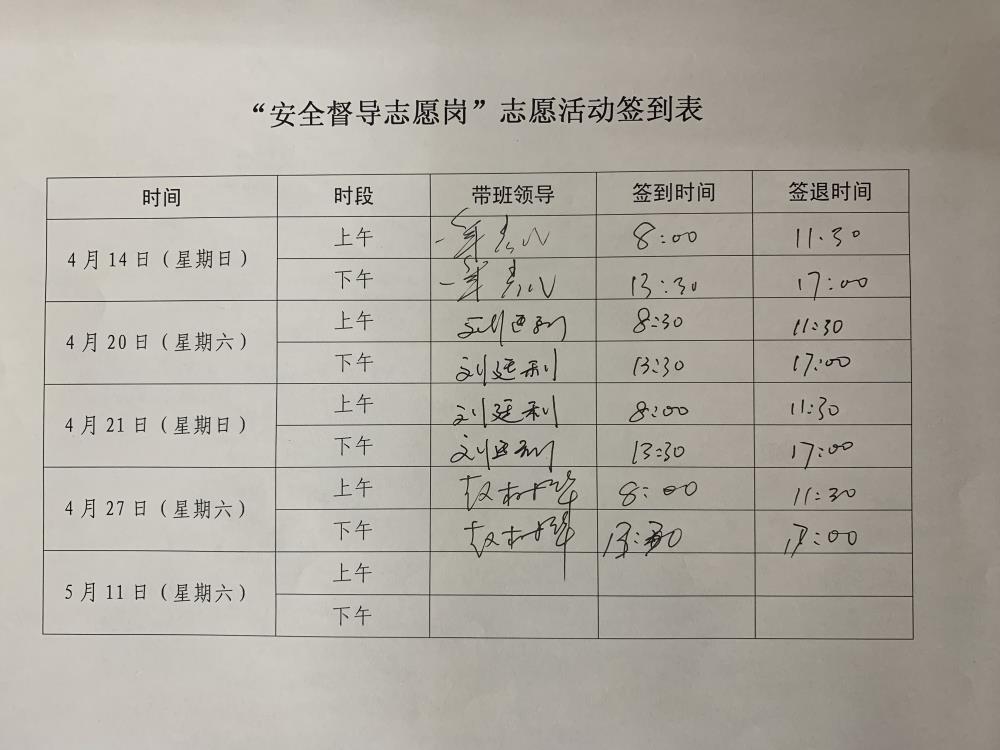 “安全督导志愿岗”志愿活动签到表
时间 时段 带班领导 签到时间 签退时间
4月14日（星期日） 上午 8:00 11.30
下午 13:30 17:00
4月20日（星期六） 上午 刘廷利 8:30 11:30
下午 刘廷利 13:30 17:00
4月21日（星期日） 上午 刘廷利 8:00 11:30
下午 刘廷利 13:30 17:00
4月27日（星期六） 上午 8:00 11:30
下午 13:30 17:00
5月11日（星期六） 上午
下午